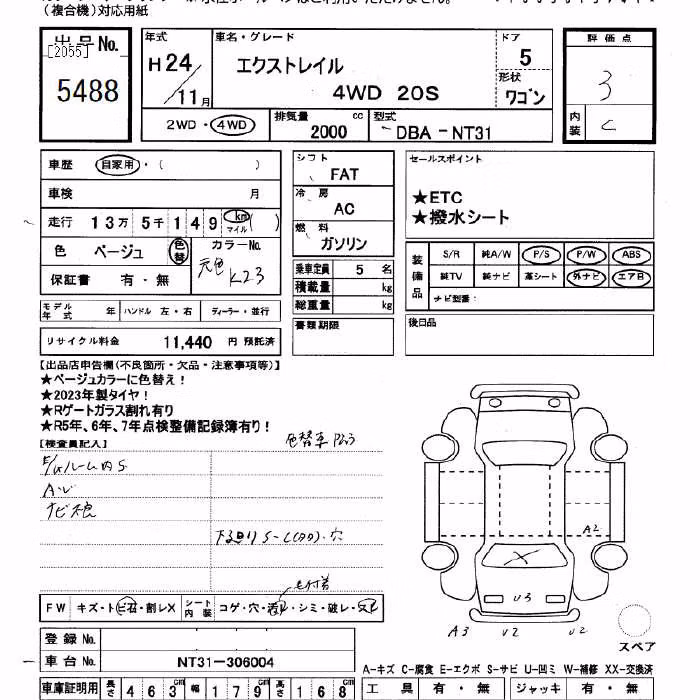 (複合機)対応用紙
出品No. [2055] 5488
年式 H24/11月
車名・グレード エクストレイル 4WD 20S
ドア 5
形状 ワゴン
評価点 3
内装 C
2WD・4WD
排気量 2000 cc
型式 DBA-NT31
車歴 自家用・( )
車検 月
走行 13万5千149 km マイル ( )
色 ベージュ 色替
カラーNo. 元色 K23
保証書 有・無
シフト FAT
冷房 AC
燃料 ガソリン
乗車定員 5 名
積載量 kg
総重量 kg
書類期限
セールスポイント
★ETC
★撥水シート
装備品 S/R 純A/W P/S P/W ABS
純TV 純ナビ 革シート 外ナビ エアB
ナビ型番:
後日品
モデル年式 年 ハンドル 左・右 ディーラー・並行
リサイクル料金 11,440 円 預託済
【出品店申告欄(不良箇所・欠品・注意事項等)】
★ベージュカラーに色替え!
★2023年製タイヤ!
★Rゲートガラス割れ有り
★R5年、6年、7年点検整備記録簿有り!
【検査員記入】
色替車
ナビ不良
下回りS-C(中中)・穴
FW キズ・トビ石・割レX
シート内装 コゲ・穴・汚レ・シミ・破レ・スレ
登録No.
車台No. NT31-306004
車庫証明用 長さ 463cm 幅 179cm 高さ 168cm
A2
U3
A3 U2 U2
スペア
A-キズ C-腐食 E-エクボ S-サビ U-凹ミ W-補修 XX-交換済
工具 有・無 ジャッキ 有・無